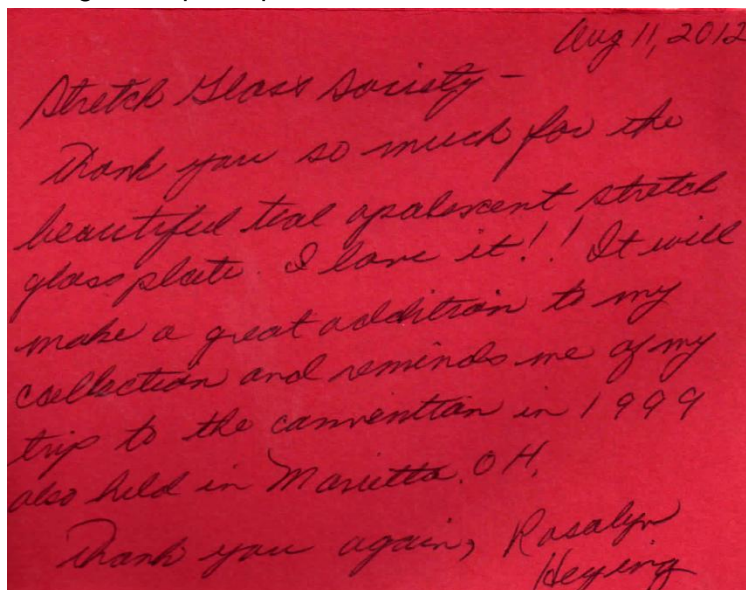 Aug 11, 2012
Stretch Glass Society -
Thank you so much for the
beautiful teal opalescent stretch
glass plate. I love it!! It will
make a great addition to my
collection and reminds me of my
trip to the convention in 1999
also held in Marietta, OH.
Thank you again, Rosalyn
Heying